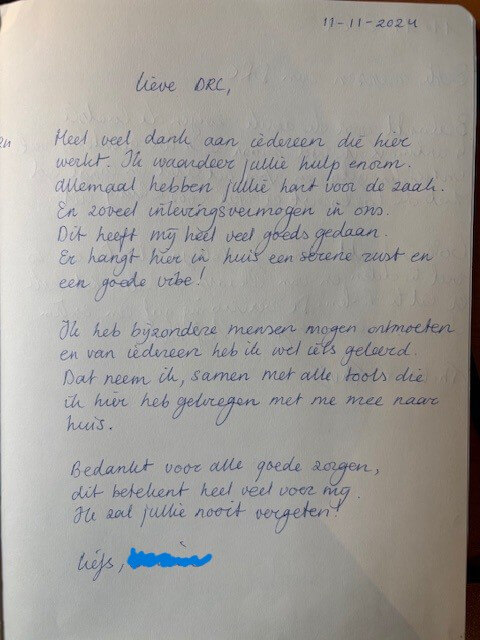 11-11-2024
lieve DRC,
Heel veel dank aan iedereen die hier
werkt. Ik waardeer jullie hulp enorm.
Allemaal hebben jullie hart voor de zaak.
En zoveel inlevingsvermogen in ons.
Dit heeft mij heel veel goeds gedaan.
Er hangt hier in huis een serene rust en
een goede vibe!
Ik heb bijzondere mensen mogen ontmoeten
en van iedereen heb ik wel iets geleerd.
Dat neem ik, samen met alle tools die
ik hier heb gekregen met me mee naar
huis.
Bedankt voor alle goede zorgen,
dit betekent heel veel voor mij.
Ik zal jullie nooit vergeten!
liefs,